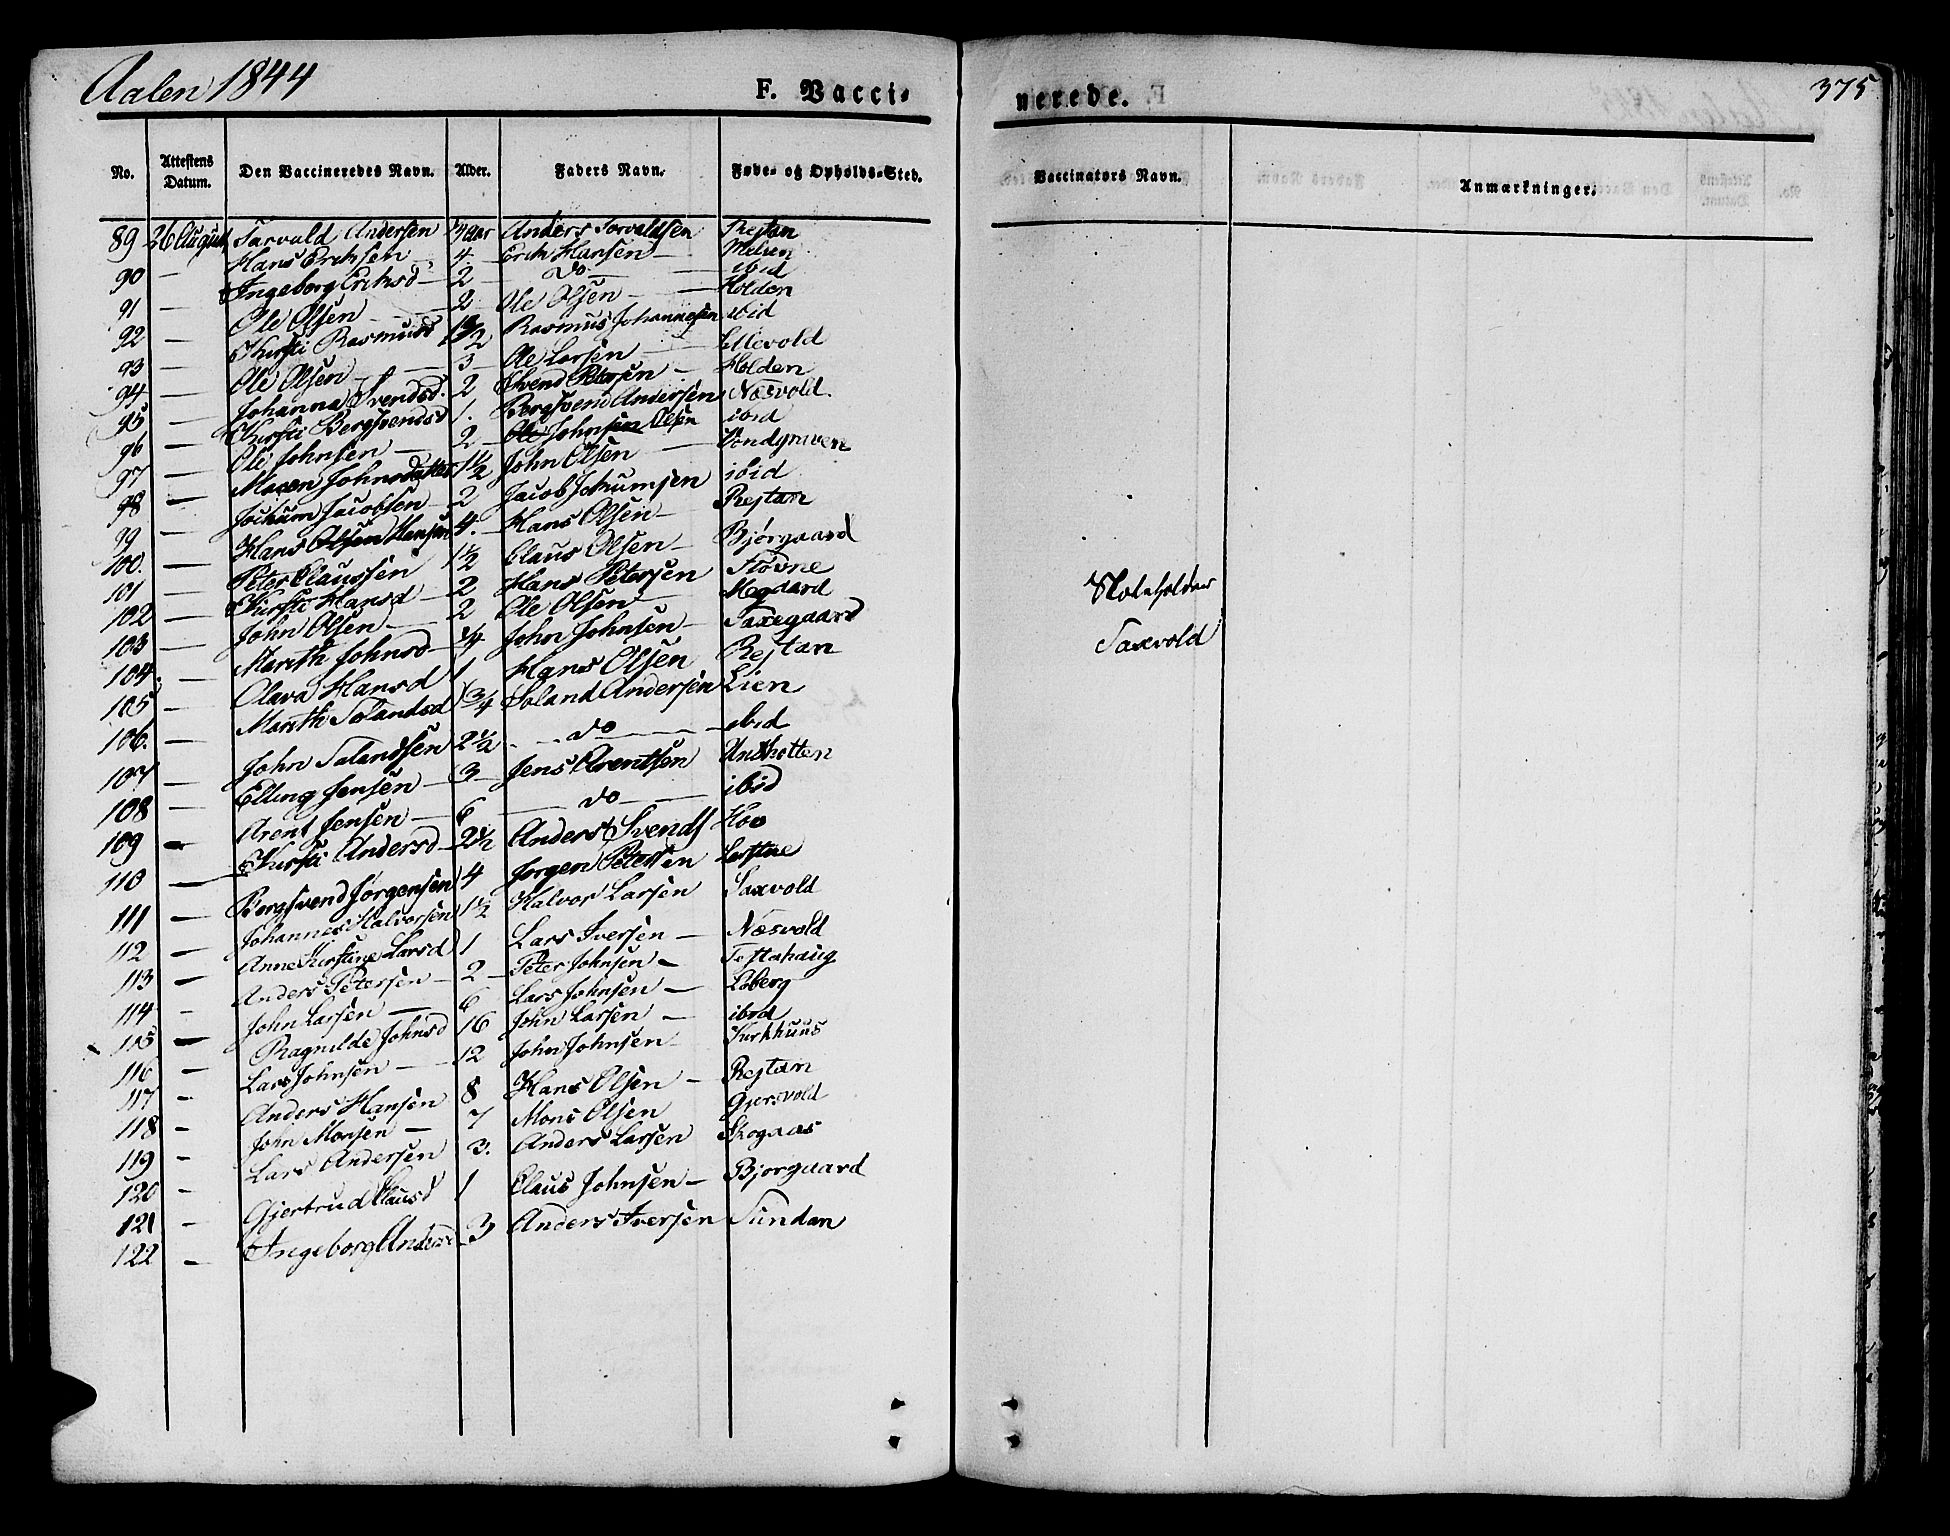 Aalen 1844
F. Vacci-
nerede.
375
No. Attestens Datum. Den Vaccineredes Navn. Alder. Faders Navn. Føde- og Opholds-Sted. Vaccinators Navn. Anmærkninger.
89 26 August Torvald Andersen Aar Anders Torvaldsen Rejtan
90 — Hans Erichsen 4 Erich Hansen —
91 — Ingeborg Eriksd — 2 — Do — ibid
92 — Ole Olsen 2 Ole Olsen — Holden
93 — Kirsti Rasmusd Rasmus Johannesen ibid
94 — Ole Olsen — 3 — Ole Larsen — Ellevold
95 — Johanna Svendsd. 2 Svend Petersen — Holden
96 — Kirsti Bergsvendsd 1. Bergsvend Andersen Næsvold
97 — Ole Johnsen — 2 — Ole Johnsen Olsen ibid
98 — Maren Johnsdatter 1 1/2 John Olsen —
99 — Jochum Jacobsen — 2 Jacob Jochumsen ibid
100. — Hans Olsen Hansen 4. Hans Olsen — Rejtan
101 — Peter Claussen 1 1/2 Claus Olsen — Bjørgaard
102 — Kirsti Hansd — 2 Hans Petersen Støvne
103 — John Olsen — 2 Ole Olsen — Mogaard
104 — Marith Johnsd — 1/4 John Johnsen — Saxegaard
105 — Olava Hansd 1 Hans Olsen Rejtan
106. — Marith Tolandsd 1 3/4 Toland Andersen Lien
107 — John Tolandsen 2 1/2 — do — ibid
108 — Elling Jensen — 3 — Jens Arentsen
109 — Arent Jensen — 6 — do — ibid
110 — Kirsti Andersd — 2 1/2 Anders Svends Hov
111 — Bergsvend Jørgensen 4 Jørgen Petersen
112 — Johannes Halvorsen 1 1/2 Halvor Larsen Saxvold
113 — Anne Kirstine Larsd 1 Lars Iversen — Næsvold
114 — Anders Petersen — 2 — Peter Johnsen —
115 — John Larsen — 6 Lars Johnsen — Loberg
116 — Ragnilde Johnsd 16 John Larsen — ibid
117 — Lars Johnsen — 12 John Johnsen — Kirkhuus
118 — Anders Hansen 8 Hans Olsen — Rejtan
119 — John Monsen — 7 Mons Olsen Gjersvold
120 — Lars Andersen 3. Anders Larsen Skogaas
121 — Gjertrud Clausd 1 Claus Johnsen — Bjorgaard
122 — Ingeborg 3 Anders Iversen Sundan
Skoleholder
Saxvold